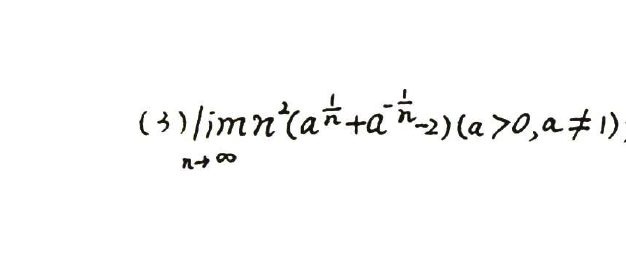 (3) lim n²(a^{1/n}+a^{-1/n}-2)(a>0,a≠1);
n→∞